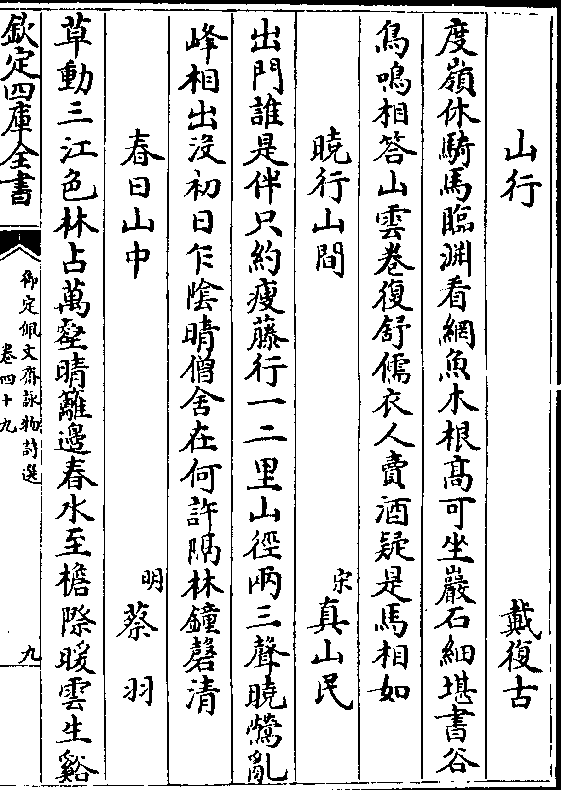 山行　戴復古
度嶺休騎馬臨淵看網魚木根髙可坐巖石細堪書谷
鳥鳴相答山雲卷復舒儒衣人賣酒疑是馬相如
曉行山間　宋真山民
出門誰是伴只約瘦藤行一二里山徑兩三聲曉鶯亂
峰相出沒初日乍陰晴僧舍在何許隔林鐘磬清
春日山中　明蔡羽
草動三江色林占萬壑晴籬邊春水至檐際暖雲生谿
欽定四庫全書
御定佩文齋詠物詩選
卷四十九
九